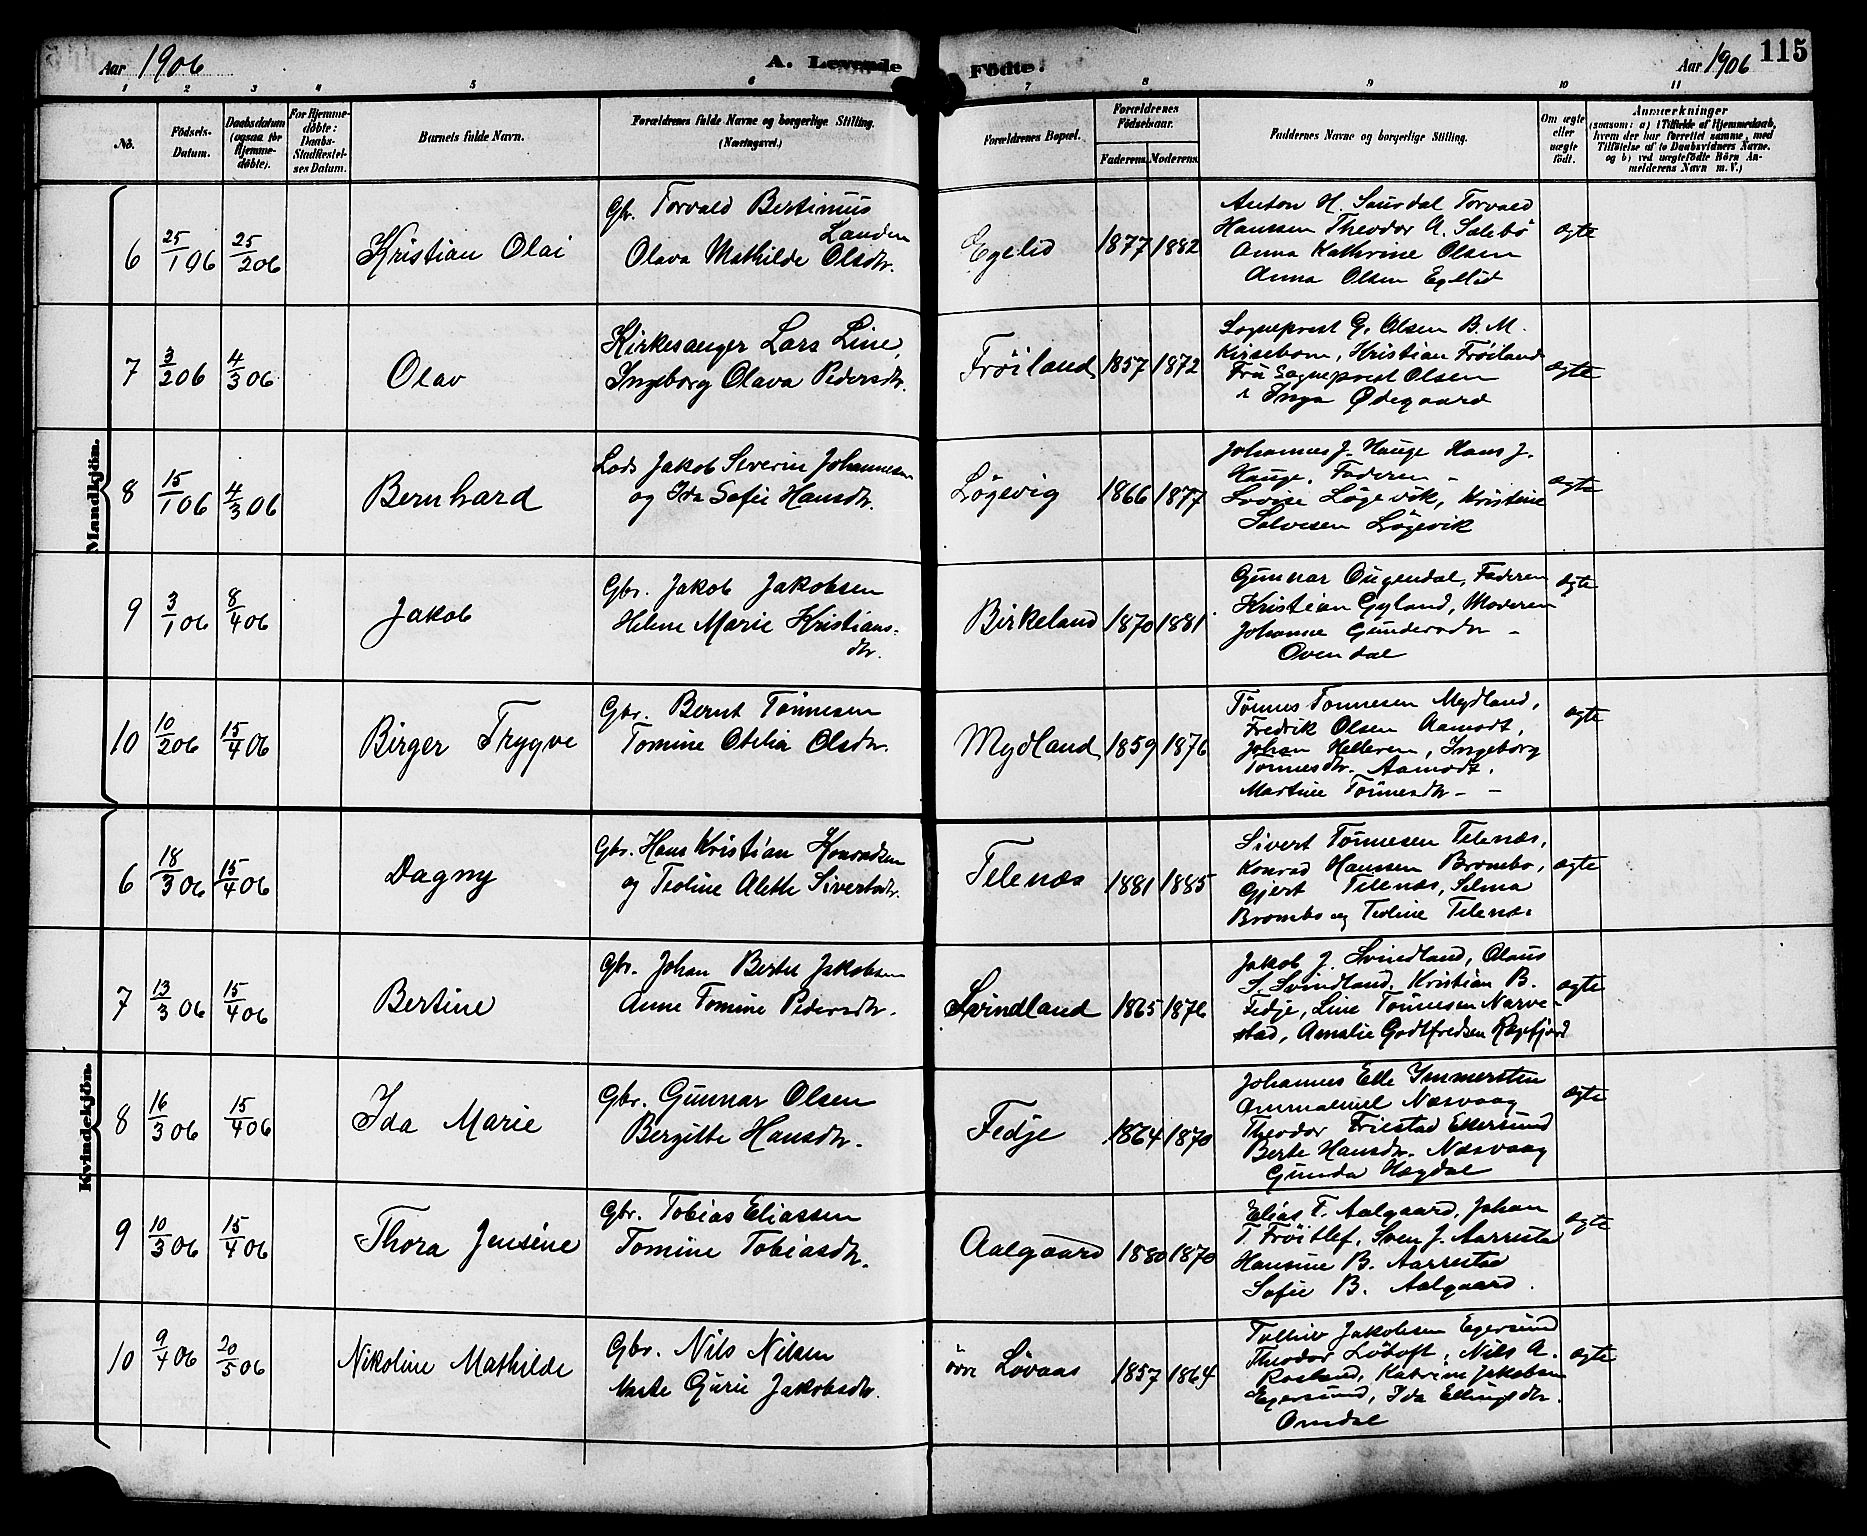 Aar 1906
A. Levende Fødte.
Aar 1906 115
1 2 3 4 5 6 7 8 9 10 11
No.
Fødsels-
Datum.
Daabsdatum
(ogsaa for
Hjemme-
døbte).
For Hjemme-
døbte:
Daabs-
Stadfæstel-
ses Datum.
Barnets fulde Navn.
Forældrenes fulde Navne og borgerlige Stilling.
(Næringsvei.)
Forældrenes Bopæl.
Forældrenes
Fødselsaar.
Faderens. Moderens.
Faddernes Navne og borgerlige Stilling.
Om ægte
eller
uægte
født.
Anmærkninger
(saasom: a) i Tilfælde af Hjemmedaab,
hvem der har forrettet samme, med
Tilføielse af to Daabsvidners Navne.
og b) ved uægtefødte Børn An-
melderens Navn m. V.)
Mandkjön.
6 25/1 06 25/2 06 Kristian Olai
Gbr. Torvald Bertinius
Landen
Olava Mathilde Olsdtr.
Egelid 1877 1882
Anton H. Saurdal Torvald
Hanssen Theodor A. Salebø
Anna Kathrine Olsen
Anna Olsen Egelid
ægte
7 3/2 06 4/3 06 Olav
Kirkesanger Lars Line,
Ingeborg Olava Pedersdtr.
Frøiland 1857 1872
Sogneprest G. Olsen B. M.
Kirsebom, Kristian Frøiland
Fru Sogneprest Olsen
Inga Ødegaard
ægte
8 15/1 06 4/3 06 Bernhard
Lods Jakob Severin Johannesen
og Ida Sofie Hansdtr.
Løgevig 1866 1877
Johannes J. Hauge Hans J.
Hauge, Faderen -
Lovise Løgevik, Kristine
Salvesen Løgevik
ægte
9 3/1 06 8/4 06 Jakob
Gbr. Jakob Jakobsen
Helene Marie Kristians-
dtr.
Birkeland 1870 1881
Gunnar Ougendal, Faderen
Kristian Gyland, Moderen
Johanne Gundersdtr -
Ovendal
ægte
10 10/2 06 15/4 06 Birger Trygve
Gbr. Bernt Tønnesen
Tomine Otelia Olsdtr.
Mydland 1859 1876
Tønnes Tønnesen Mydland,
Fredrik Olsen Aamodt,
Johan Helleren, Ingeborg
Tønnesdtr. Aamodt.
Martine Tønnesdtr - -
ægte
Kvindekjön.
6 18/3 06 15/4 06 Dagny
Gbr. Hans Kristian Konradsen
og Teoline Alette Sivertsdtr.
Telenæs 1881 1885
Sivert Tønnesen Telenæs,
Konrad Hanssen Brombo,
Gjert Telenæs, Selma
Brombo og Teoline Telenæs
ægte
7 13/3 06 15/4 06 Bertine
Gbr. Johan Bertel Jakobsen
Anne Tomine Pedersdtr.
Svindland 1865 1876
Jakob J. Svindland, Olaus
S. Svindland, Kristian B.
Fedje, Line Tønnesen Narve-
stad, Amalie Godtfredsen Rægefjord
ægte
8 16/3 06 15/4 06 Ida Marie
Gbr. Gunnar Olsen
Bergitte Hansdtr.
Fedje 1864 1870
Johannes Elle Immerstein
Næsvaag
Theodor Friestad Ekersund
Berte Hansdtr. Næsvaag
Gunda Hægdal
ægte
9 10/3 06 15/4 06 Thora Jensine
Gbr. Tobias Eliassen
Tomine Tobiasdtr.
Aalgaard 1880 1870
Elias T. Aalgaard, Johan
T. Frøitlef, Sven J. Aarrestad
Hansine B. Aarrestad
Sofie B. Aalgaard.
ægte
10 9/4 06 20/5 06 Nikoline Mathilde
Gbr. Nils Nilsen
Marte Gurie Jakobsdtr.
øvre Løvaas 1857 1864
Tollev Jakobsen Egersund
Theodor Løtoft, Nils A.
Rosland, Katrine Jakobsen
Egersund, Ida Ellingsdtr.
Omdal
ægte